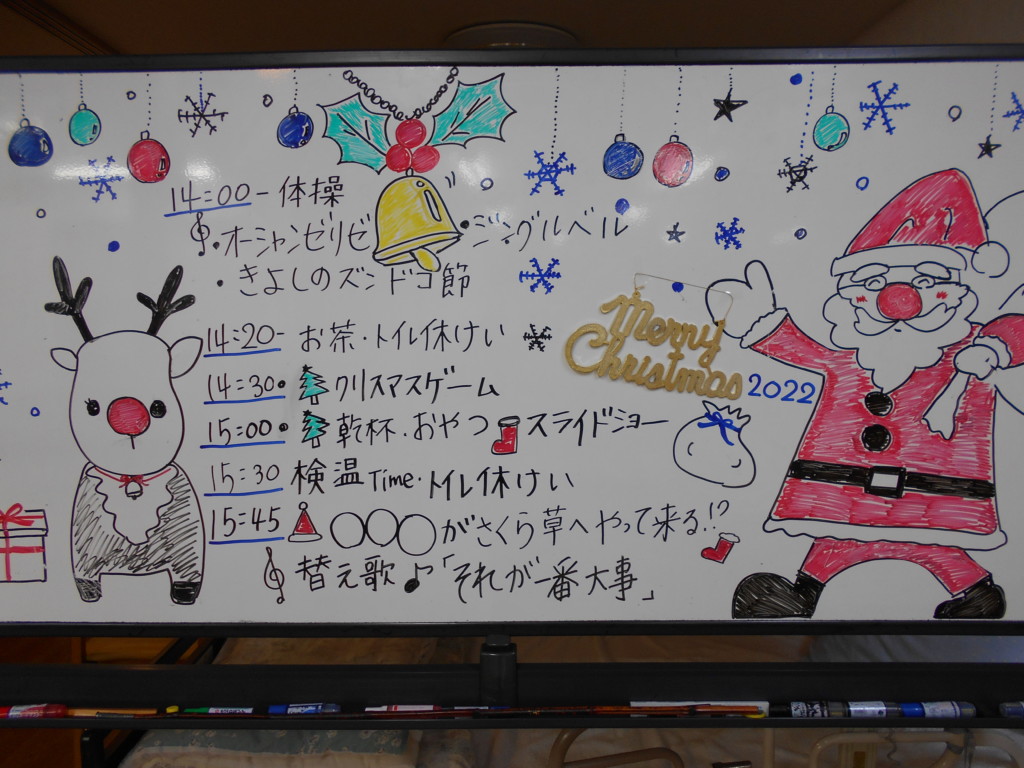 14:00- 体操
・オーシャンゼリゼ ・ジングルベル
・きよしのズンドコ節
14:20- お茶・トイレ休けい
14:30・ クリスマスゲーム
15:00・ 乾杯・おやつ スライドショー
15:30 検温Time・トイレ休けい
15:45 〇〇〇がさくら草へやって来る!?
替え歌♪「それが一番大事」
Merry
Christmas
2022